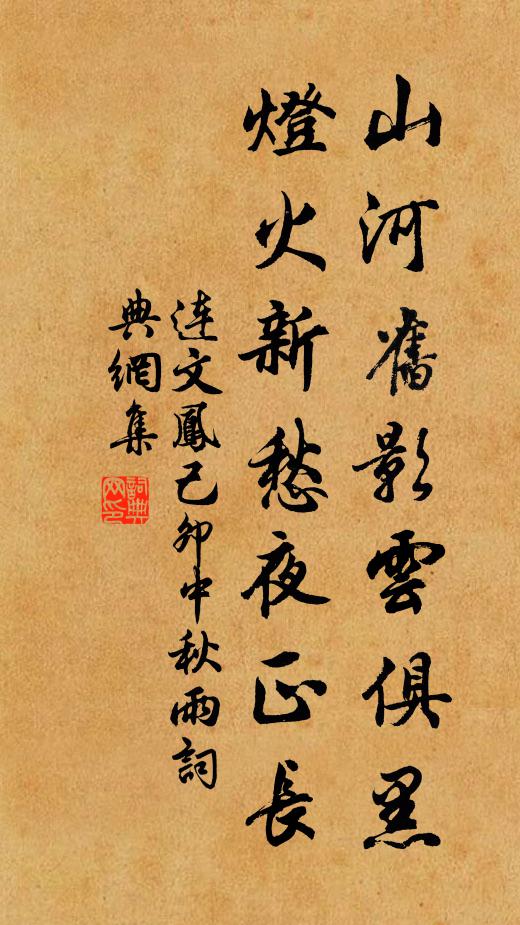 山河舊影雲俱黑
燈火新愁夜正長
连文鳳己卯中秋雨詞
典網集
詞典
网印